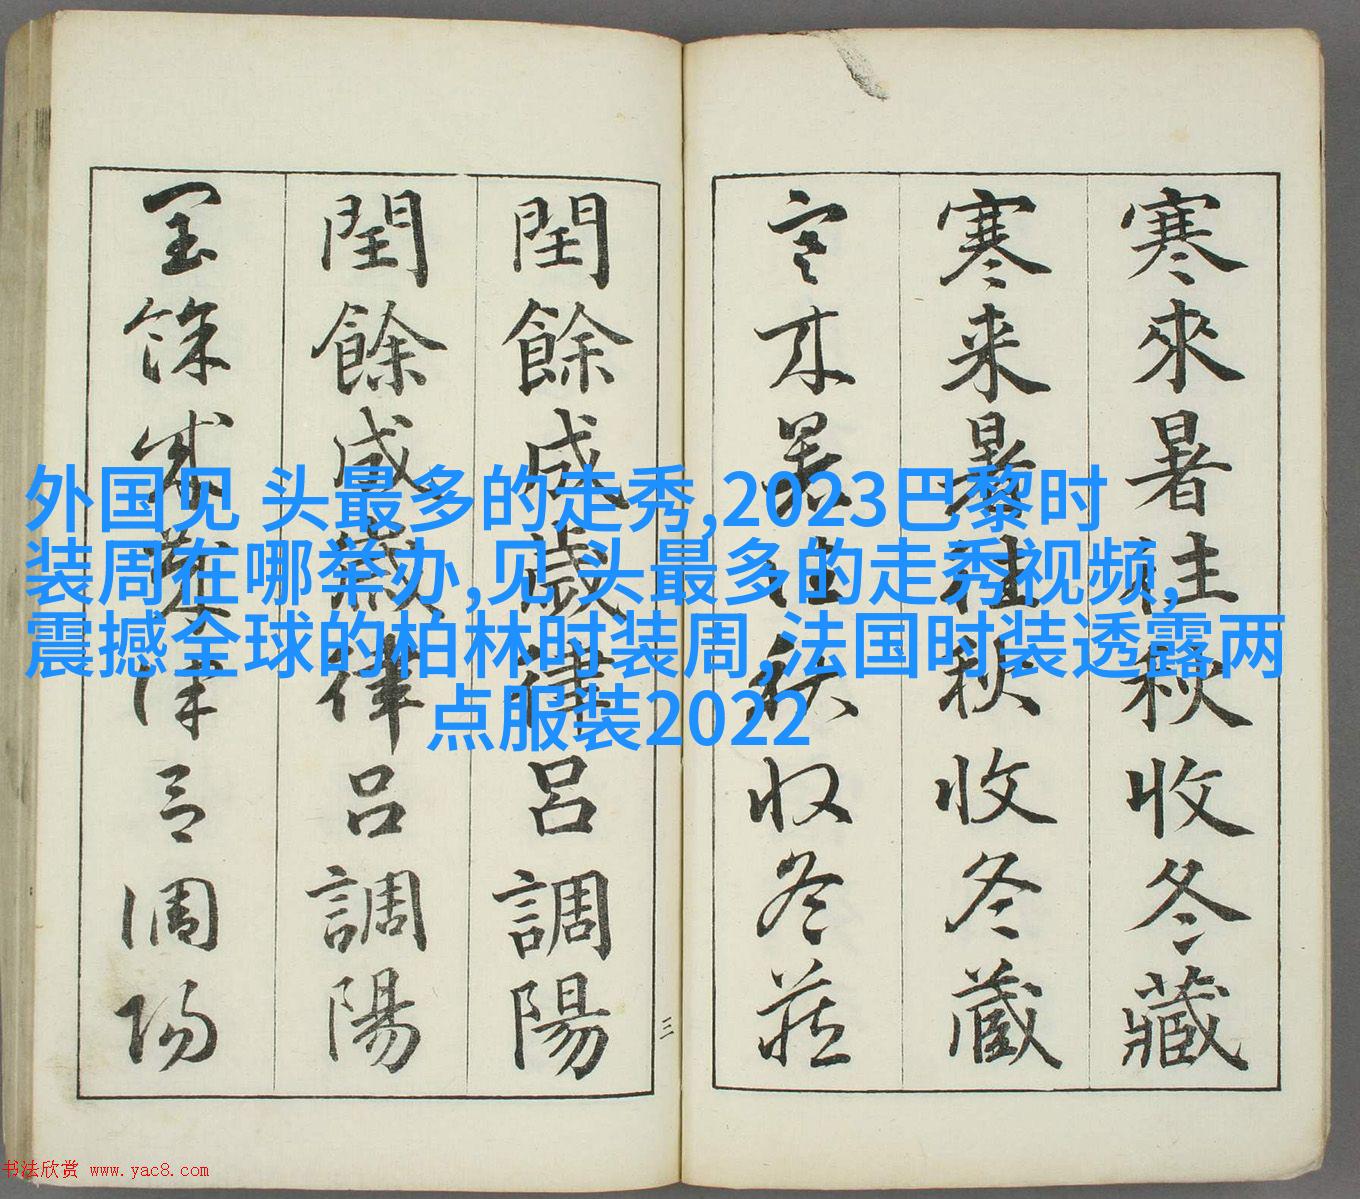 寒來暑往秋收冬藏
寒来暑往秋收冬蔵
寒来暑往秋收冬藏
三
閏餘成歲律呂調陽
閏餘成歲律呂調陽
閏餘成歲律呂調陽
外国见 头最多的走秀,2023巴黎时
装周在哪举办,见 头最多的走秀视频,
震撼全球的柏林时装周,法国时装透露两
点服装2022
书法欣赏 www.yac8.com